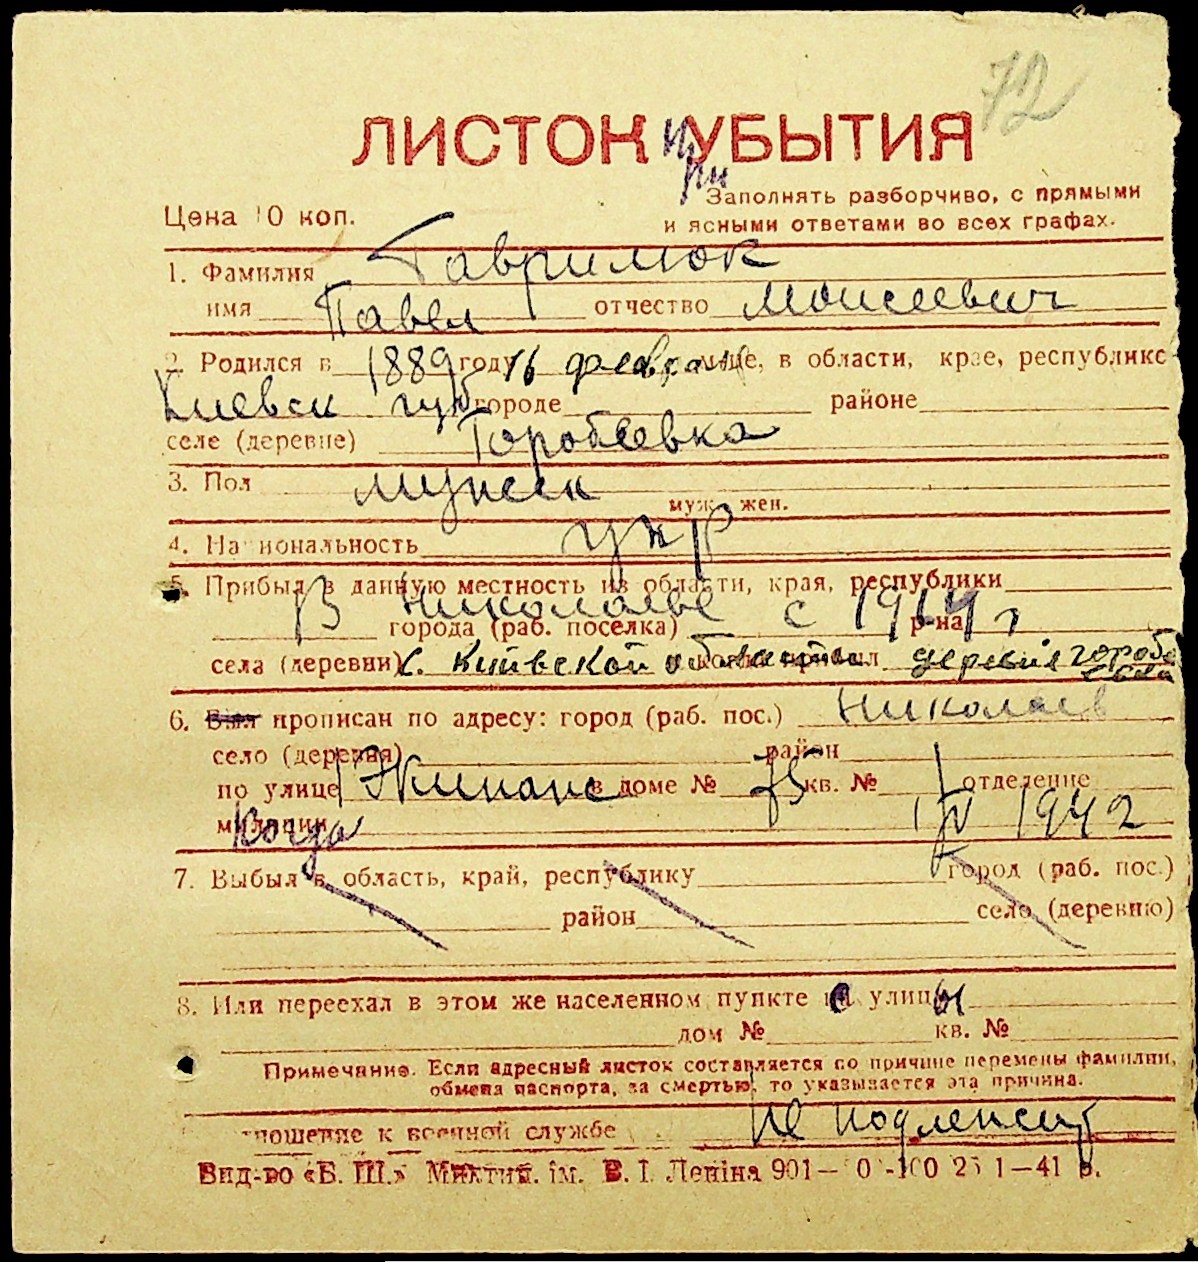 72
ЛИСТОК при УБЫТИЯ
Заполнять разборчиво, с прямыми
Цена 10 коп.
и ясными ответами во всех графах.
1. Фамилия Гаврилюк
имя Павел отчество Моисеевич
2. Родился в 1889 году 16 февраля м-це, в области, крае, республике
Киевск губ городе районе
селе (деревне) Горобеевка
3. Пол мужск
муж. жен.
4. Национальность укр
5. Прибыл в данную местность из области, края, республики
В Николаеве с 1914 г
города (раб. поселка) р-на
села (деревни) с. Киевской области прибыл деревня горобеевка
6. Был прописан по адресу: город (раб. пос.) Николаев
село (деревня) район
по улице в доме № 75 кв. № 1 отделение
милиции Когда 1 IV 1942
7. Выбыл в область, край, республику город (раб. пос.)
район село (деревню)
8. Или переехал в этом же населенном пункте с улицы
дом № кв. №
Примечание. Если адресный листок составляется по причине перемены фамилии,
обмена паспорта, за смертью, то указывается эта причина.
Отношение к военной службе Не подлежит
Вид-во «Б. Ш.» Миктип. ім. В. І. Леніна 901— 1—41 р.